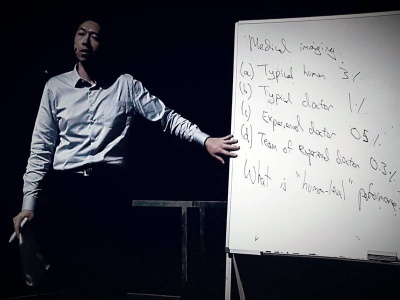 Medical imaging:
(a) Typical human 3%
(b) Typical doctor 1%
(c) Experienced doctor 0.5%
(d) Team of experienced doctors 0.3%
What is "human-level" performance?